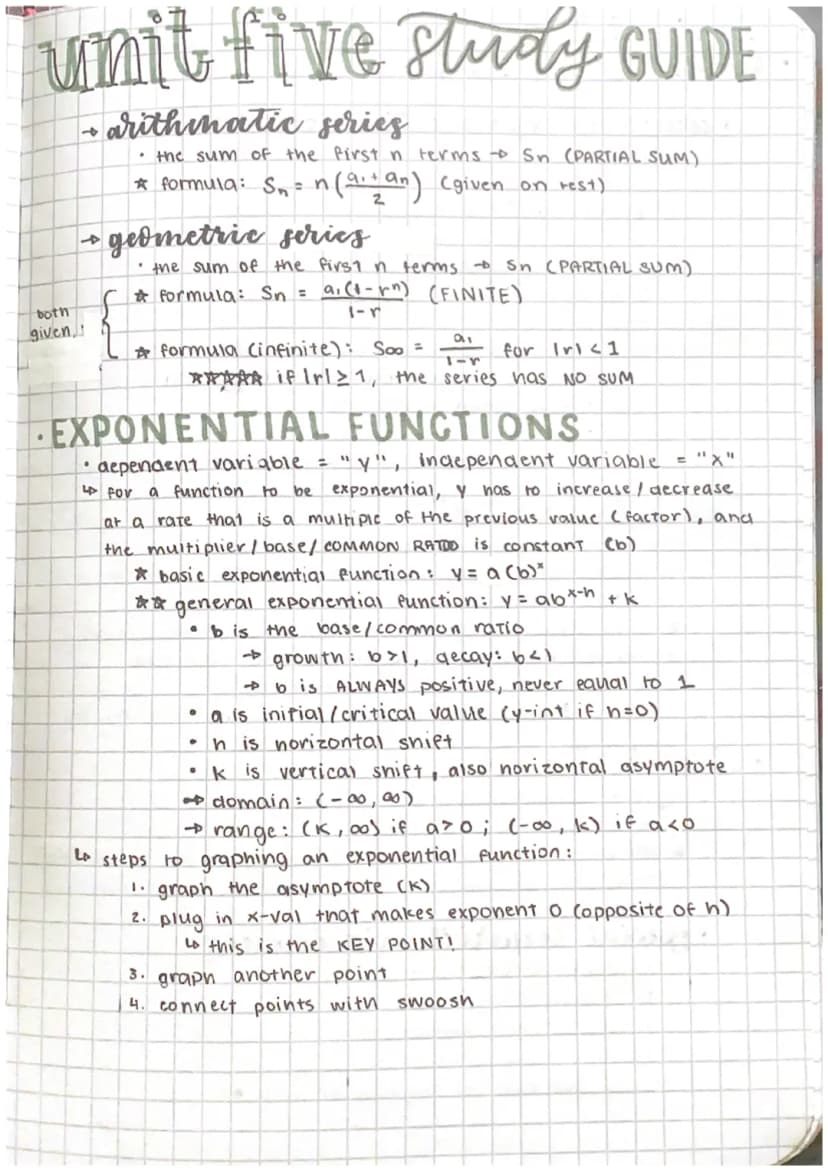 unit five study GUIDE
→ arithmatic series
• the sum of the first n terms → Sn (PARTIAL SUM)
☆ formula: Sn = n(a₁ + an / 2) (given on test)
→ geometric series
• the sum of the first n terms → Sn (PARTIAL SUM)
☆ formula: Sn = a₁(1-rⁿ) / 1-r (FINITE)
both given!
☆ formula (infinite): S∞ = a₁ / 1-r for |r| < 1
☆☆☆☆☆ if |r| ≥ 1, the series has NO SUM
• EXPONENTIAL FUNCTIONS
• dependent variable = "y", independent variable = "x"
↳ for a function to be exponential, y has to increase/decrease
at a rate that is a multiple of the previous value (factor), and
the multiplier/base/COMMON RATIO is constant (b)
☆ basic exponential function: y = a(b)ˣ
☆☆ general exponential function: y = abˣ⁻ʰ + k
• b is the base/common ratio
→ growth: b>1, decay: b<1
→ b is ALWAYS positive, never equal to 1
• a is initial/critical value (y-int if h=0)
• h is horizontal shift
• k is vertical shift, also horizontal asymptote
→ domain: (-∞, ∞)
→ range: (k, ∞) if a>0; (-∞, k) if a<0
↳ steps to graphing an exponential function:
1. graph the asymptote (k)
2. plug in x-val that makes exponent 0 (opposite of h)
↳ this is the KEY POINT!
3. graph another point
4. connect points with swoosh